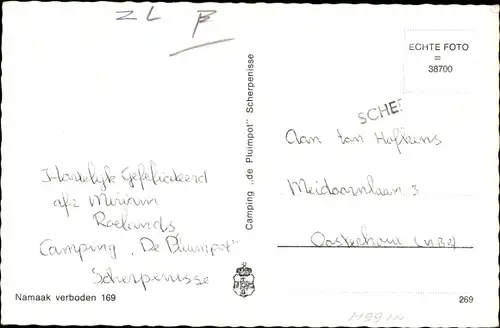 ZL F
ECHTE FOTO
=
38700
SCHE
Camping „de Pluimpot" Scherpenisse
Aan ton Hofkens
Meidoornlaan 3
Oosterhout (N.B.)
Hartelijk Gefeliciteerd
afz Miriam
Roelands
Camping „De Pluimpot"
Scherpenisse
Namaak verboden 169
269